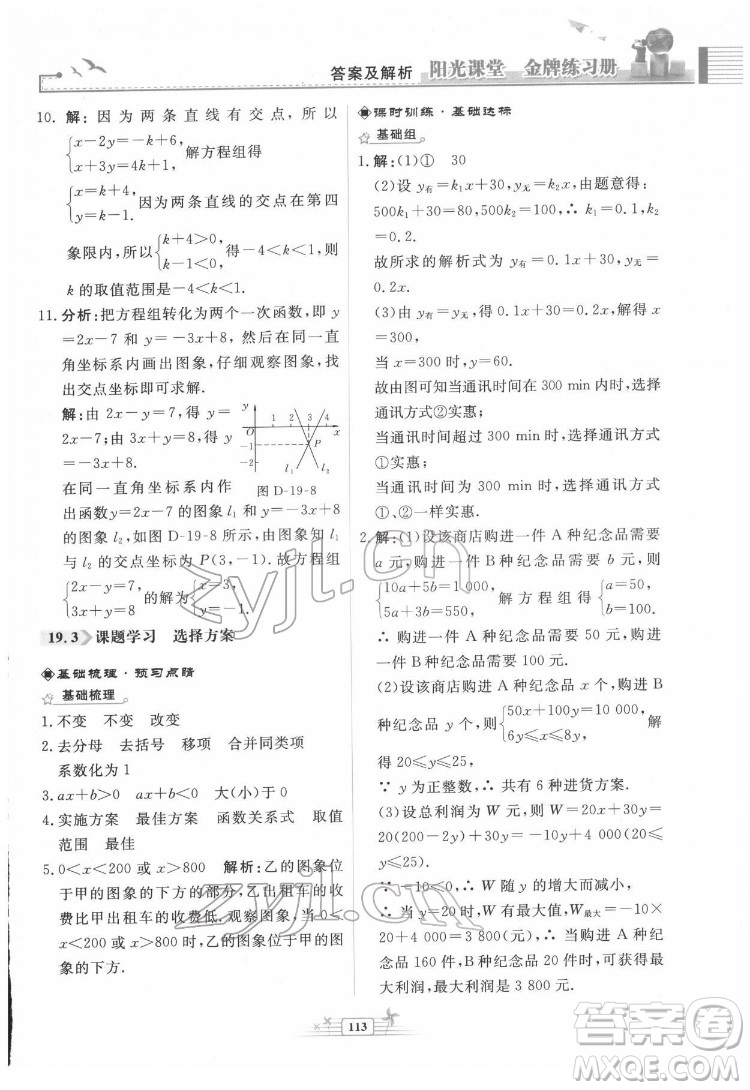 答案及解析 阳光课堂 金牌练习册
10. 解: 因为两条直线有交点,所以
{x-2y=-k+6, x+3y=4k+1 解方程组得
{x=k+4, y=k-1. 因为两条直线的交点在第四
象限内,所以{k+4>0, k-1<0 得-4<k<1,则
k 的取值范围是-4<k<1.
11. 分析:把方程组转化为两个一次函数,即 y
=2x-7 和 y=-3x+8,在同一直
角坐标系内画出图象,仔细观察图象,找
出交点坐标即可求解.
解:由 2x-y=7,得 y=
2x-7.由 3x+y=8,得
y=-3x+8.
在同一直角坐标系内作
出函数 y=2x-7 的图象 l₁ 和 y=-3x+8
的图象 l₂,如图 D-19-8 所示,观察图象,l₁
与 l₂ 的交点坐标为 P(3,-1).故方程组
{2x-y=7, 3x+y=8 的解为{x=3, y=-1.
y
O 1 2 3 4 x
-1 P
-2 l₁ l₂
图 D-19-8
19.3 课题学习 选择方案
基础梳理·预习点睛
基础梳理
1. 不变 不变 改变
2. 去分母 去括号 移项 合并同类项
系数化为 1
3. ax+b>0 ax+b<0 大(小)于 0
4. 实施方案 最佳方案 函数关系式 取值
范围 最佳
5. 0<x<200 或 x>800 解析:乙的图象位
于甲的图象的下方的部分,乙出租车的收
费比甲出租车的收费低.观察图象,当 0<
x<200 或 x>800 时,乙的图象位于甲的图
象的下方.
课时训练·基础达标
基础组
1. 解:(1)① 30
(2)设 y有=k₁x+30,y无=k₂x,由题意得:
500k₁+30=80,500k₂=100,∴ k₁=0.1,k₂
=0.2.
故所求的解析式为 y有=0.1x+30,y无=
0.2x.
(3)由 y有=y无,得 0.1x+30=0.2x,得 x
=300,
当 x=300 时,y=60.
故由图可知当通讯时间在 300 min 内,选择
通讯方式②实惠;
当通讯时间超过 300 min 时,选择通讯方式
①实惠;
当通讯时间为 300 min 时,选择通讯方式
①、②一样实惠.
2. 解:(1)设该商店购进一件 A 种纪念品需要
a 元,购进一件 B 种纪念品需要 b 元,则
{10a+5b=1000, 5a+3b=550, 解方程组得{a=50, b=100,
∴ 购进一件 A 种纪念品需要 50 元,购进一
件 B 种纪念品需要 100 元.
(2)设该商店购进 A 种纪念品 x 个,购进 B
种纪念品 y 个,则{50x+100y=10 000, 6y≤x≤8y, 解
得 20≤y≤25.
∵ y 为正整数,∴ 共有 6 种进货方案.
(3)设总利润为 W 元,则 W=20x+30y=
20(200-2y)+30y=-10y+4 000(20≤
y≤25).
∵ -10<0,∴ W 随 y 的增大而减小,
∴ 当 y=20 时,W 有最大值,W最大=-10×
20+4 000=3 800(元).∴ 当购进 A 种纪
念品 160 件,B 种纪念品 20 件时,可获得最
大利润,最大利润是 3 800 元.
113
zyjl.cn
zyjl.cn
答案卷
MXQE.COM